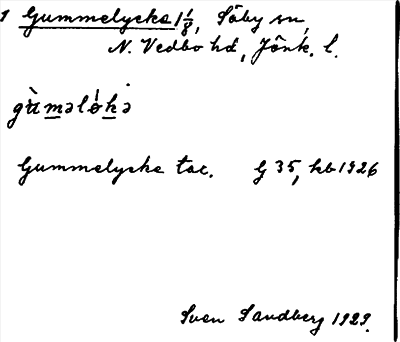 1 Gummelycke 1 1/8, Säby sn,
N. Vedbo hd, Jönk. l.
gùməlókə
Gummelycke tac. G 35, kb 1926
Sven Sandberg 1929.